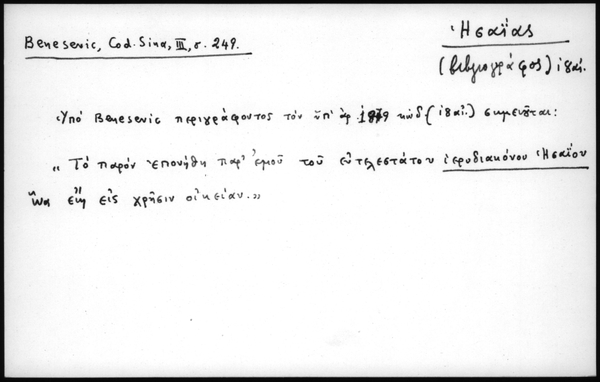 Benesevic, Cod. Sina, III, σ. 249.
Ἡσαΐας
(βιβλιογράφος) ιθʹ αἰ.
Ὑπὸ Benesevic περιγράφοντος τὸν ὑπ' ἀρ. κώδ. (ιθʹ αἰ.) σημειοῦται:
"Τὸ παρὸν ἐπονήθη παρ' ἐμοῦ τοῦ εὐτελεστάτου ἱεροδιακόνου Ἡσαΐου
ἵνα εἴη εἰς χρῆσιν οἰκείαν."